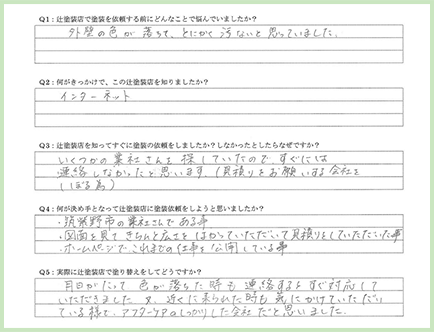 Q1：辻塗装店で塗装を依頼する前にどんなことで悩んでいましたか？
外壁の色が落ちて、とにかく汚ないと思っていました。
Q2：何がきっかけで、この辻塗装店を知りましたか？
インターネット
Q3：辻塗装店を知ってすぐに塗装の依頼をしましたか？しなかったとしたらなぜですか？
いくつかの業社さんを探していたので、すぐには
連絡しなかったと思います。(見積りをお願いする会社を
しぼる為)
Q4：何が決め手となって辻塗装店に塗装依頼をしようと思いましたか？
・筑紫野市の業社さんである事
・図面を見てきちんと広さをはかっていただいて見積りをしていただいた事
・ホームページでこれまでの仕事を公開している事
Q5：実際に辻塗装店で塗り替えをしてどうですか？
月日がたって色が落ちた時も連絡するとすぐ対応して
いただきました。又、近くに来られた時も気にかけていただいて
いる様で、アフターケアのしっかりした会社だと思いました。